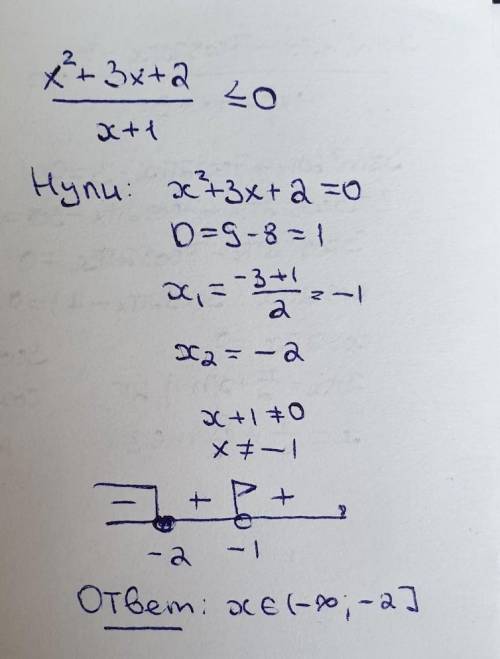 x²+3x+2 / x+1 ≤0
Нули: x²+3x+2=0
D=9-8=1
x₁= -3+1 / 2 = -1
x₂= -2
x+1≠0
x≠-1
- + +
-2 -1
Ответ: x∈(-∞;-2]